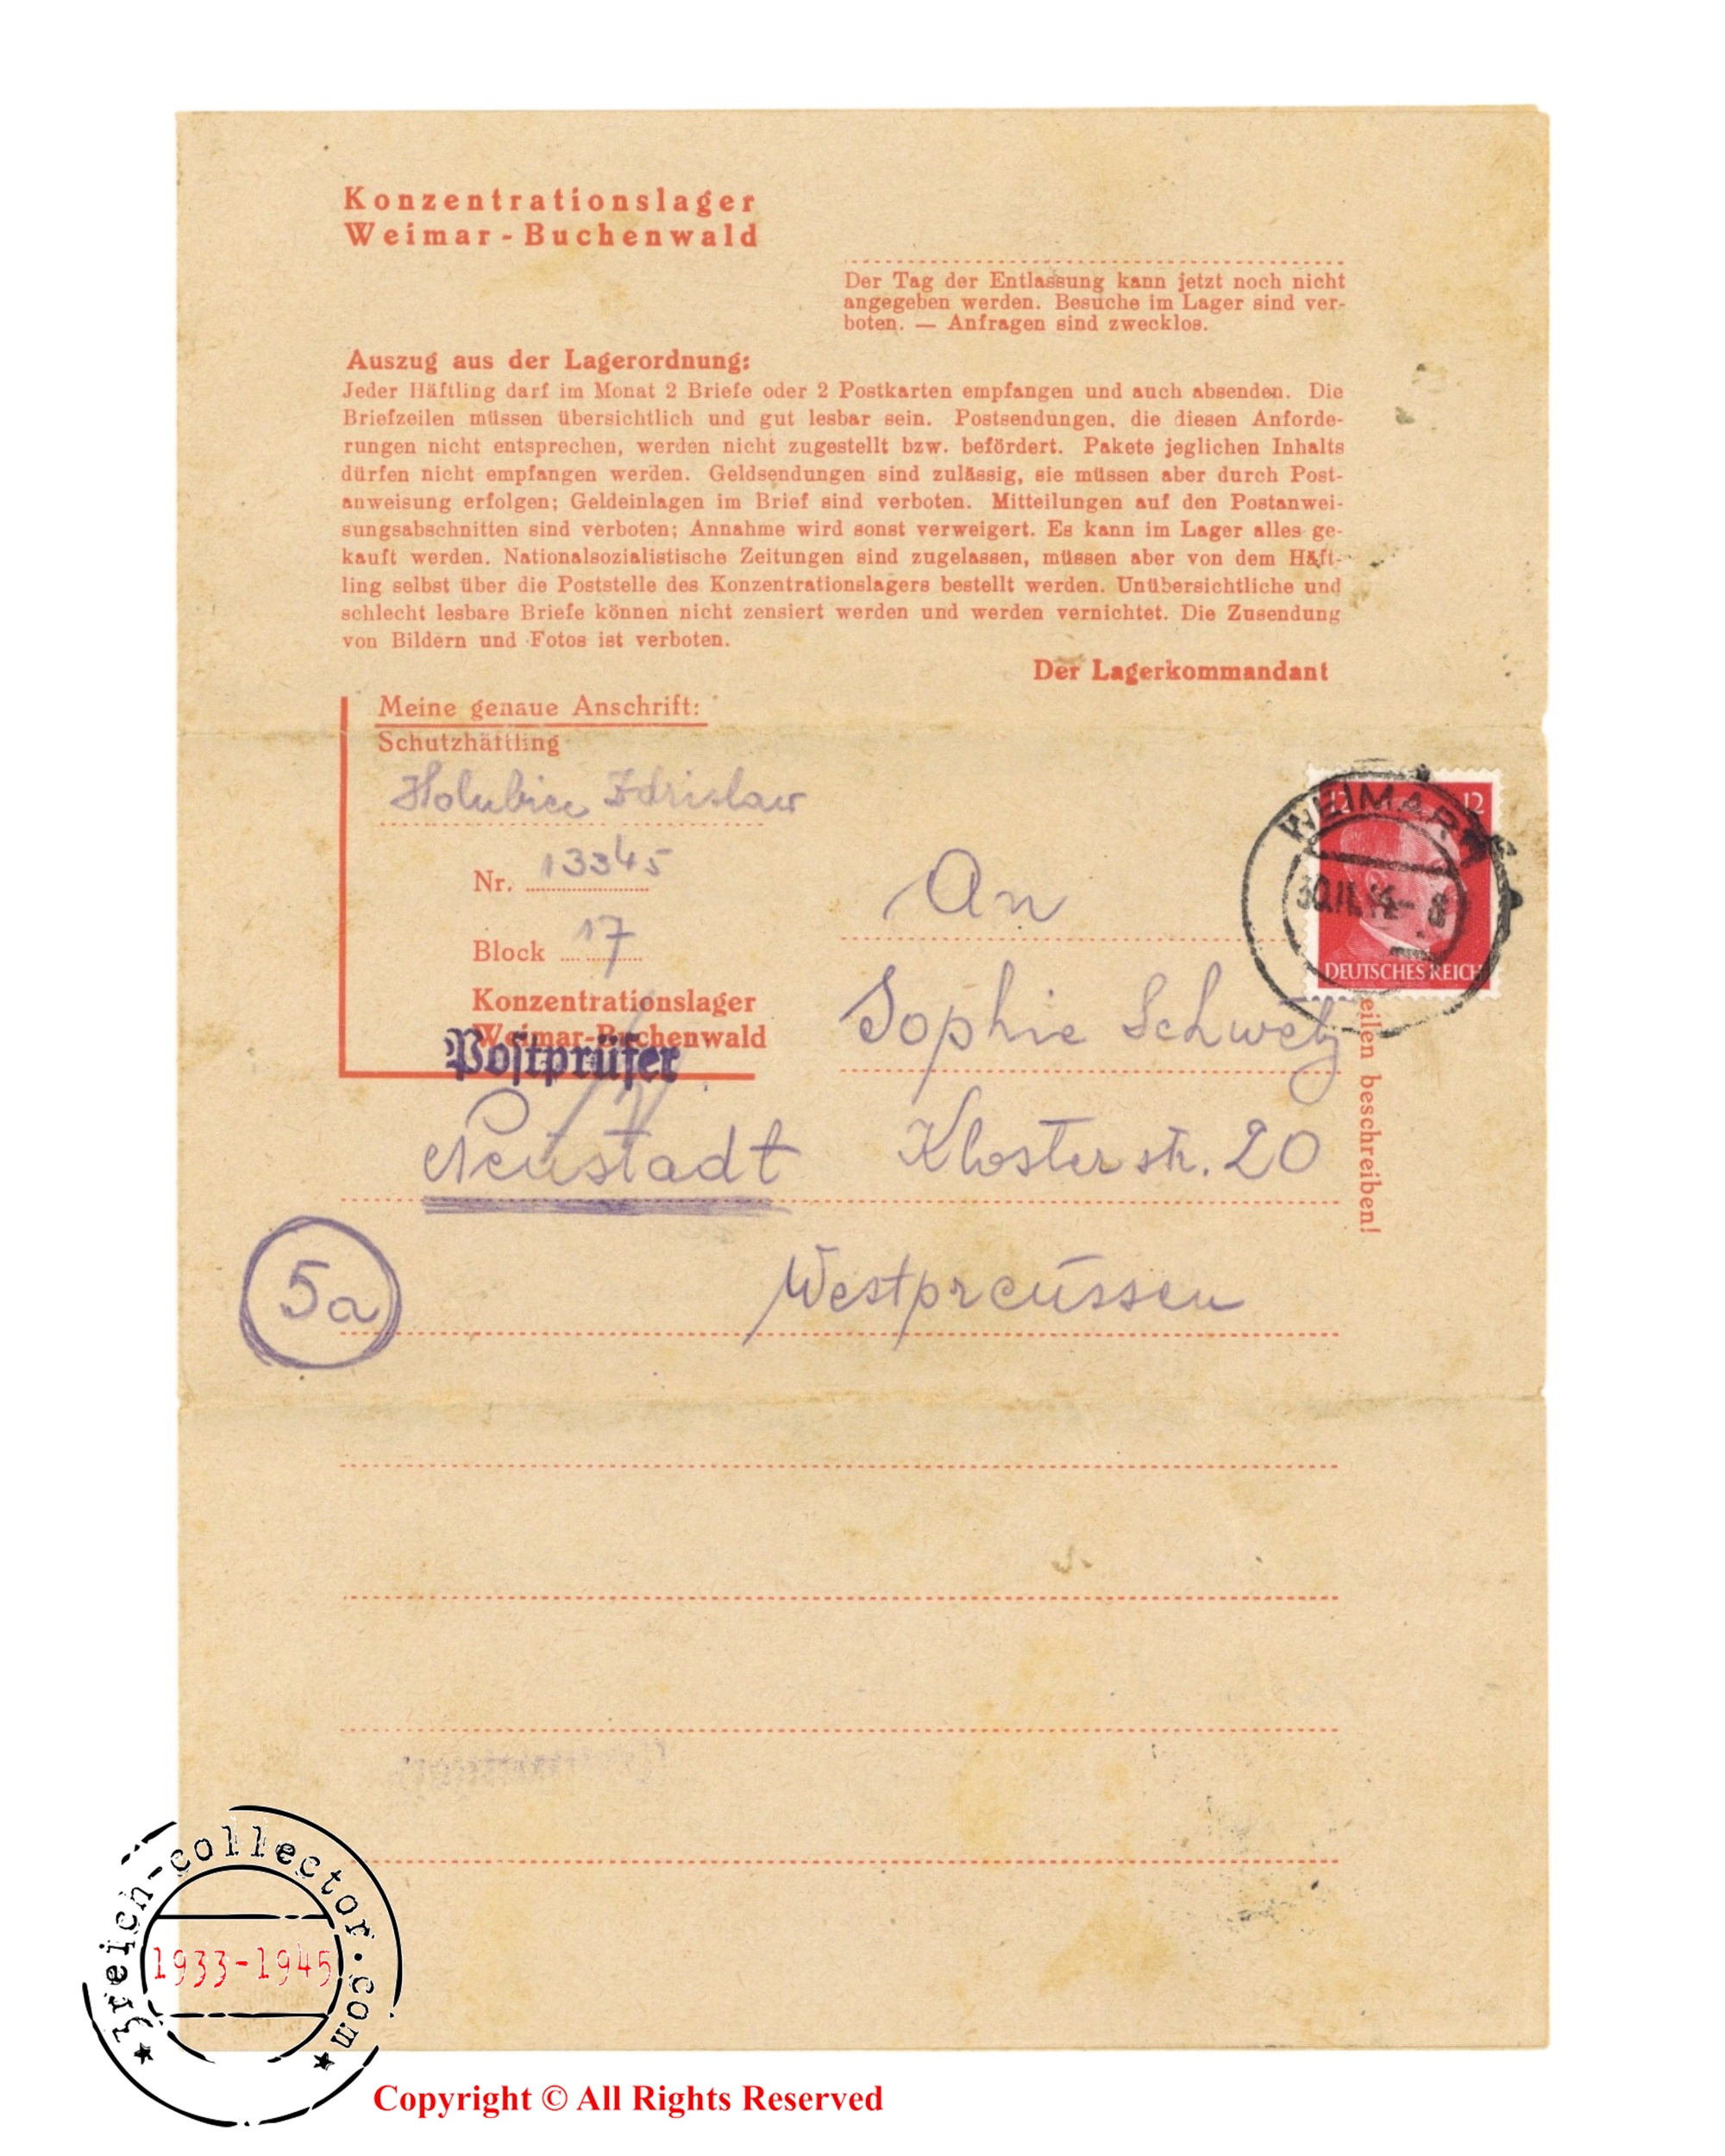 Konzentrationslager
Weimar-Buchenwald
Der Tag der Entlassung kann jetzt noch nicht
angegeben werden. Besuche im Lager sind ver-
boten. — Anfragen sind zwecklos.
Auszug aus der Lagerordnung:
Jeder Häftling darf im Monat 2 Briefe oder 2 Postkarten empfangen und auch absenden. Die
Briefzeilen müssen übersichtlich und gut lesbar sein. Postsendungen, die diesen Anforde-
rungen nicht entsprechen, werden nicht zugestellt bzw. befördert. Pakete jeglichen Inhalts
dürfen nicht empfangen werden. Geldsendungen sind zulässig, sie müssen aber durch Post-
anweisung erfolgen; Geldeinlagen im Brief sind verboten. Mitteilungen auf den Postanwei-
sungsabschnitten sind verboten; Annahme wird sonst verweigert. Es kann im Lager alles ge-
kauft werden. Nationalsozialistische Zeitungen sind zugelassen, müssen aber von dem Häft-
ling selbst über die Poststelle des Konzentrationslagers bestellt werden. Unübersichtliche und
schlecht lesbare Briefe können nicht zensiert werden und werden vernichtet. Die Zusendung
von Bildern und Fotos ist verboten.
Der Lagerkommandant
Meine genaue Anschrift:
Schutzhäftling
Nr. 13345
Block 17
Konzentrationslager
Weimar-Buchenwald
Postprüfer
WEIMAR
12 12
DEUTSCHES REICH
An
Sophie Schwetz
Neustadt Klosterstr. 20
5a
Westpreussen
eilen beschreiben!
3reich-collector.com
1933-1945
Copyright © All Rights Reserved